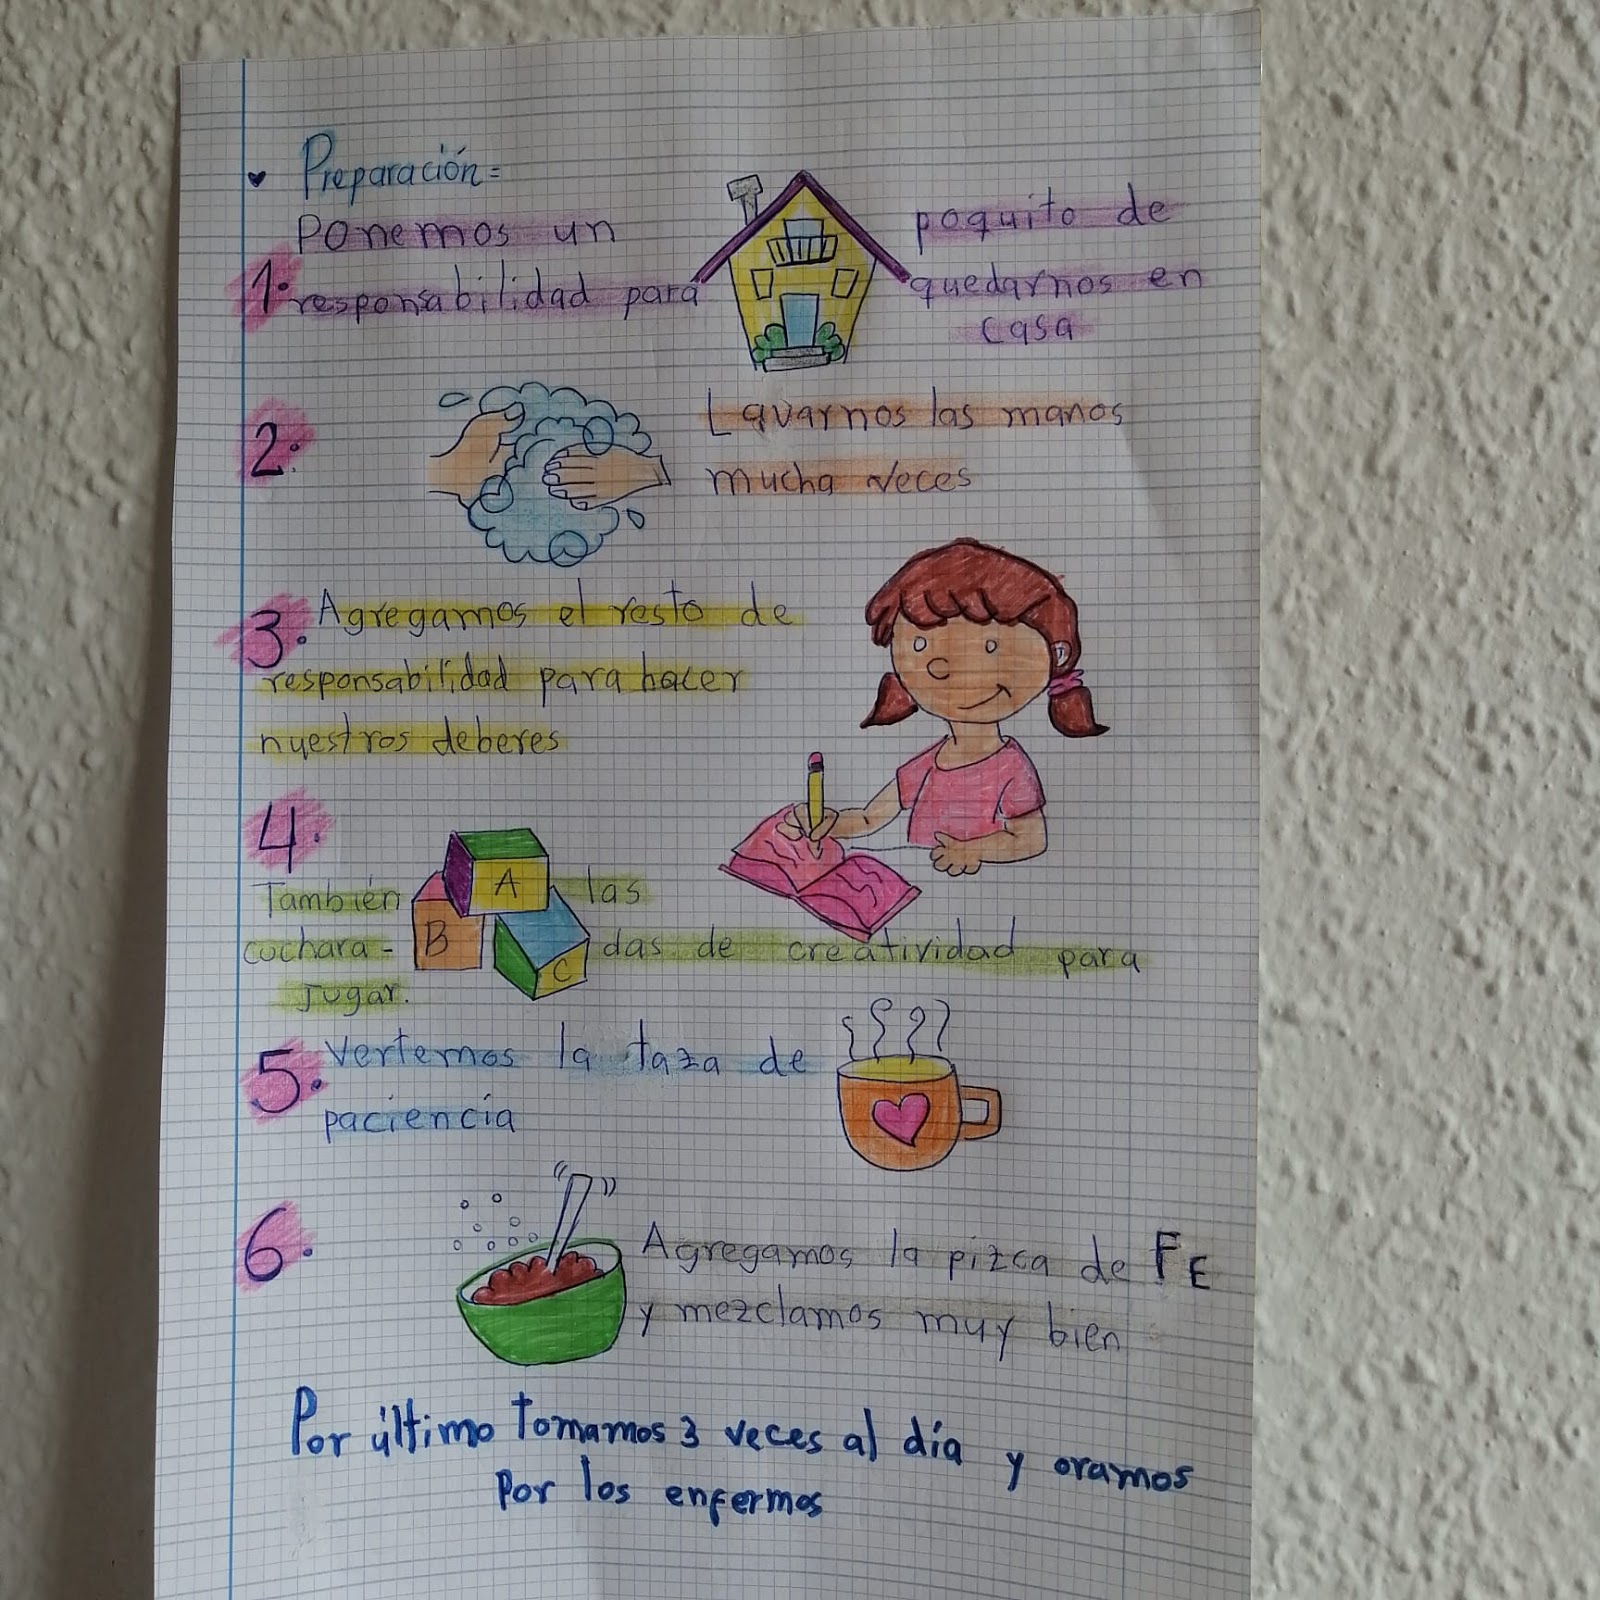 Preparación=
1. Ponemos un poquito de
responsabilidad para quedarnos en
casa
2. Lavarnos las manos
mucha veces
3. Agregamos el resto de
responsabilidad para hacer
nuestros deberes
4.
A
También las
B
cuchara- das de creatividad para
C
Jugar.
5. Vertemos la taza de
paciencia
6. Agregamos la pizca de FE
y mezclamos muy bien
Por último tomamos 3 veces al día y oramos
por los enfermos